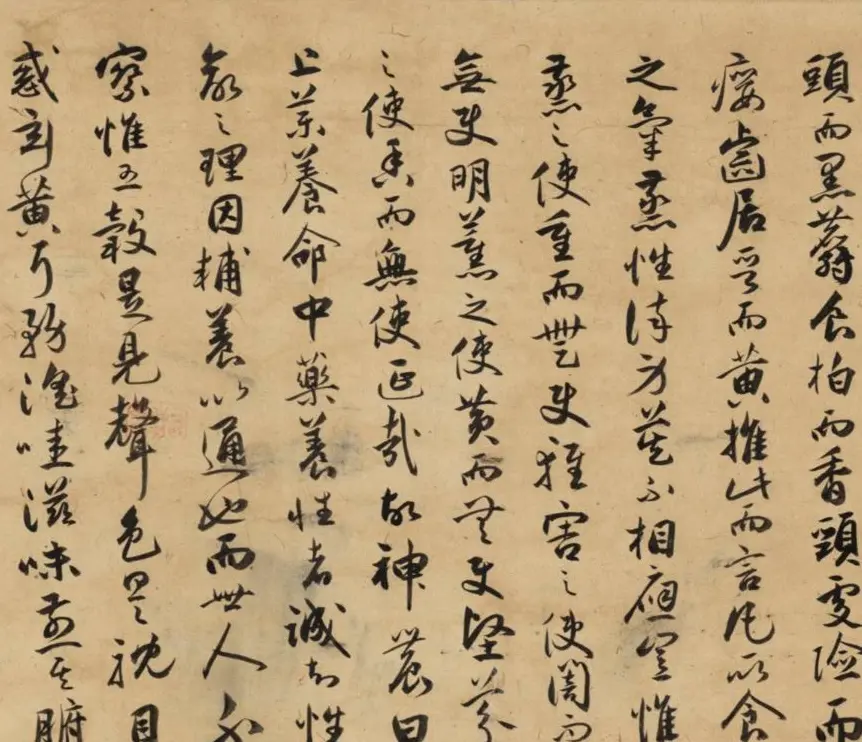 頭而黑麝食柏而香頸處險而
癭齒居晉而黃推此而言凡所食
之氣蒸性染身莫不相應豈惟
蒸之使重而無使輕害之使闇而
無使明薰之使黃而無使堅芬
之使香而無使延哉故神農曰
上藥養命中藥養性者誠知性
命之理因輔養以通也而世人不
察惟五穀是見聲色是耽目
惑玄黃耳務淫哇滋味煎其腑